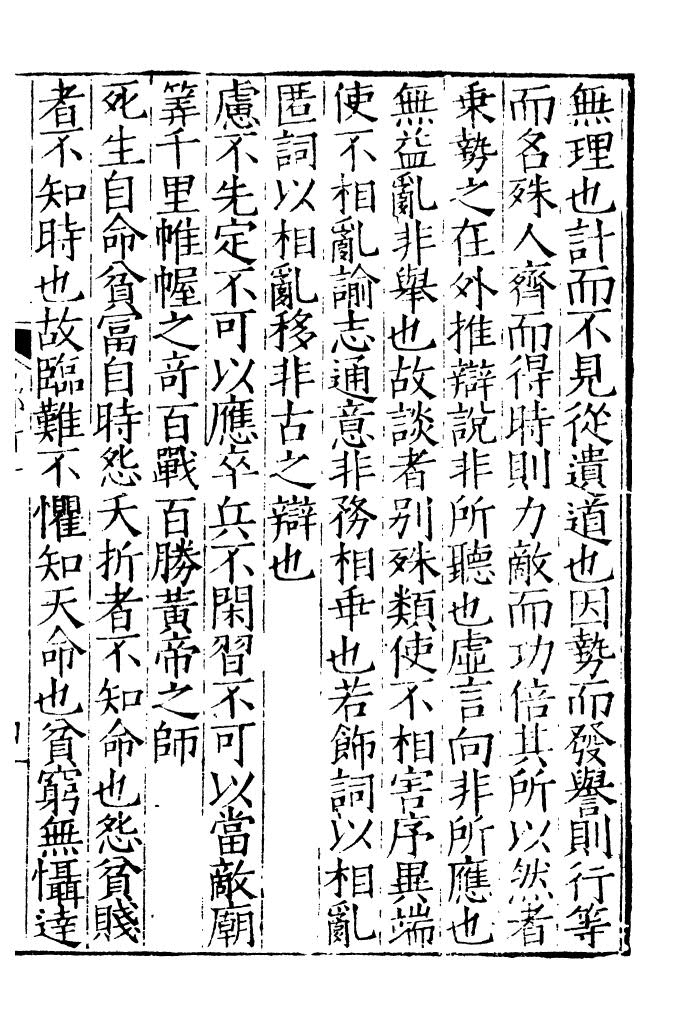 無理也計而不見從遺道也因勢而發譽則行等
而名殊人齊而得時則力敵而功倍其所以然者
乗勢之在外推辯說非所聽也虛言向非所應也
無益亂非舉也故談者别殊類使不相害序異端
使不相亂諭志通意非務相乖也若飾詞以相亂
匿詞以相亂移非古之辯也
慮不先定不可以應卒兵不閑習不可以當敵廟
筭千里帷幄之竒百戰百勝黃帝之師
死生自命貧富自時怨夭折者不知命也怨貧賤
者不知時也故臨難不懼知天命也貧窮無懾達